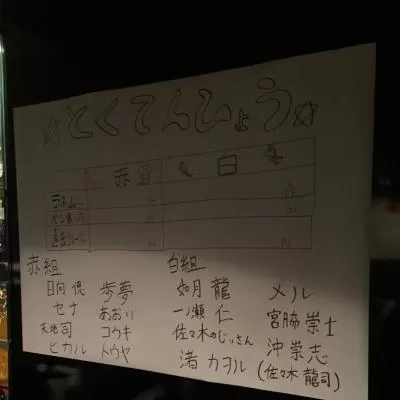 ☆とくてんひょう☆
赤 白
赤組 白組
日向 偲 歩夢 如月 龍 メル
セナ あおり 一ノ瀬 仁 宮脇 崇士
天地 司 コウキ 佐々木のじぃさん 沖 崇志
ヒカル トウヤ 渚 カヲル (佐々木 龍司)